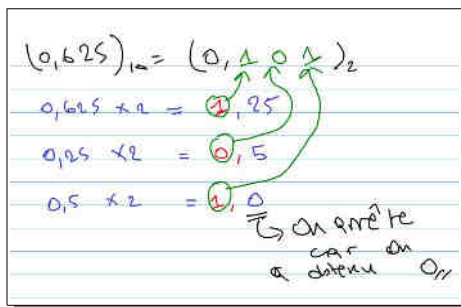 (0,625)₁₀ = (0,101)₂
0,625 × 2 = 1,25
0,25 × 2 = 0,5
0,5 × 2 = 1,0
↳ On arrête
car on
a obtenu 0//